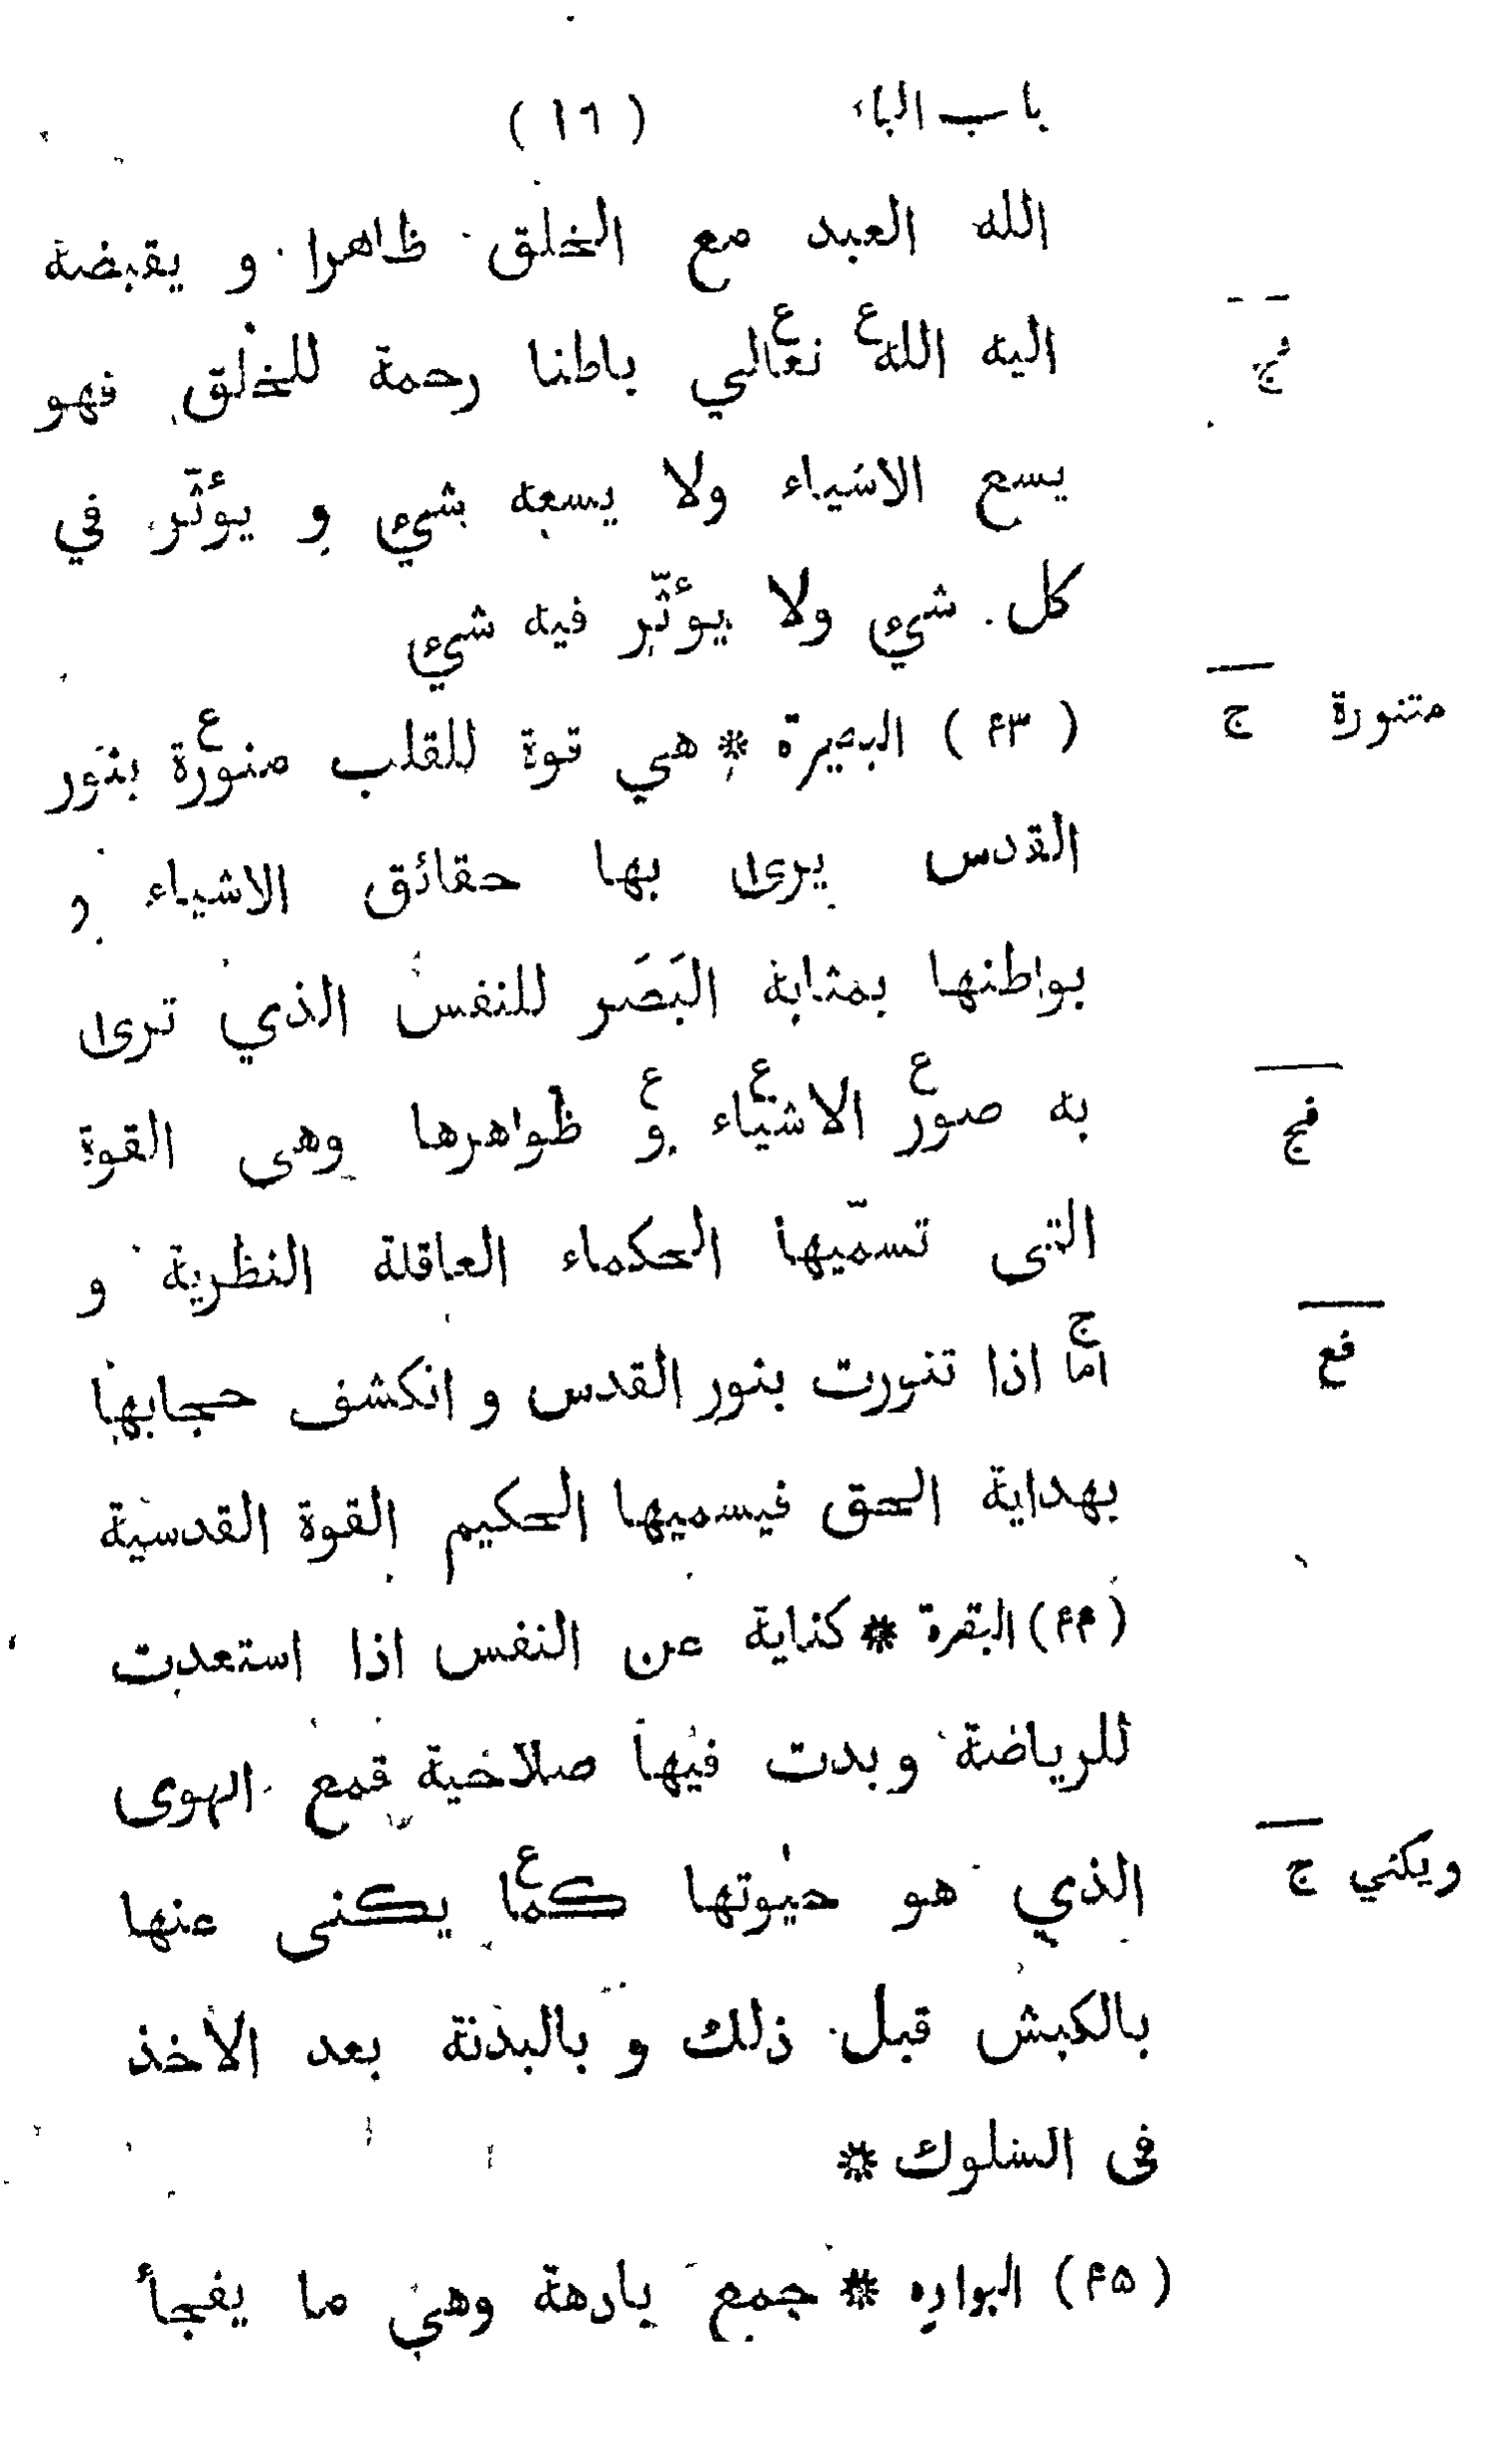 باب الباء (١٦)
الله العبد مع الخلق ظاهرا و يقبضة
اليه اللهع تعاليع باطنا رحمة للخلق فهو
فج
يسع الاشياء ولا يسعه شيء و يؤثّر في
كل شيء ولا يؤثّر فيه شيء
(۴۳) البصيرة * هي قوة للقلب منورةع بنور
متنورة ج
القدس يرىٰ بها حقائق الاشياء و
بواطنها بمثابة البَصَر للنفس الذي ترىٰ
به صورع الاشياءع وع ظواهرها وهى القوة
فج
التى تسمّيها الحكماء العاقلة النظرية و
اماج اذا تنورت بنور القدس و انكشف حجابها
فع
بهداية الحق فيسميها الحكيم القوة القدسية
(۴۴) البقرة * كناية عن النفس اذا استعدت
للرياضة و بدت فيها صلاحية قمع الهوى
الذي هو حيٰوتها كماع يكنى عنها
ويكني ج
بالكبش قبل ذلك و بالبدنة بعد الاخذ
فى السلوك *
(۴۵) البواده * جمع بادهة وهي ما يفجأ